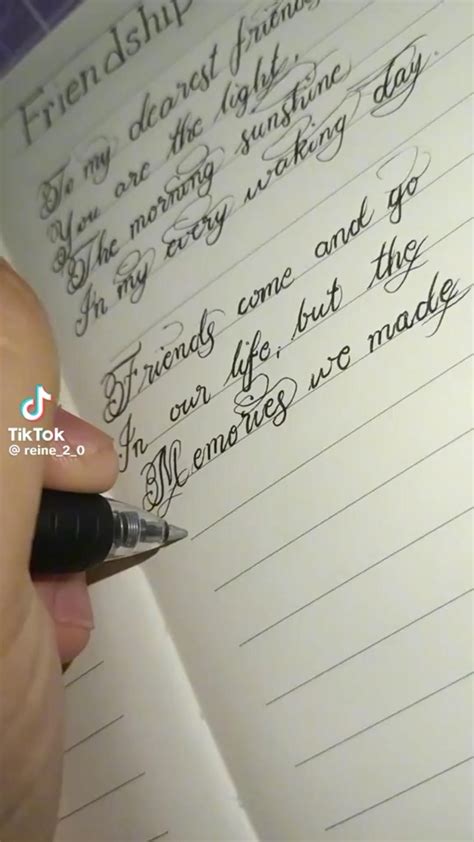 Friendship
To my dearest friend
You are the light,
The morning sunshine
In my every waking day.
Friends come and go
In our life, but the
Memories we made
TikTok
@ reine_2_0